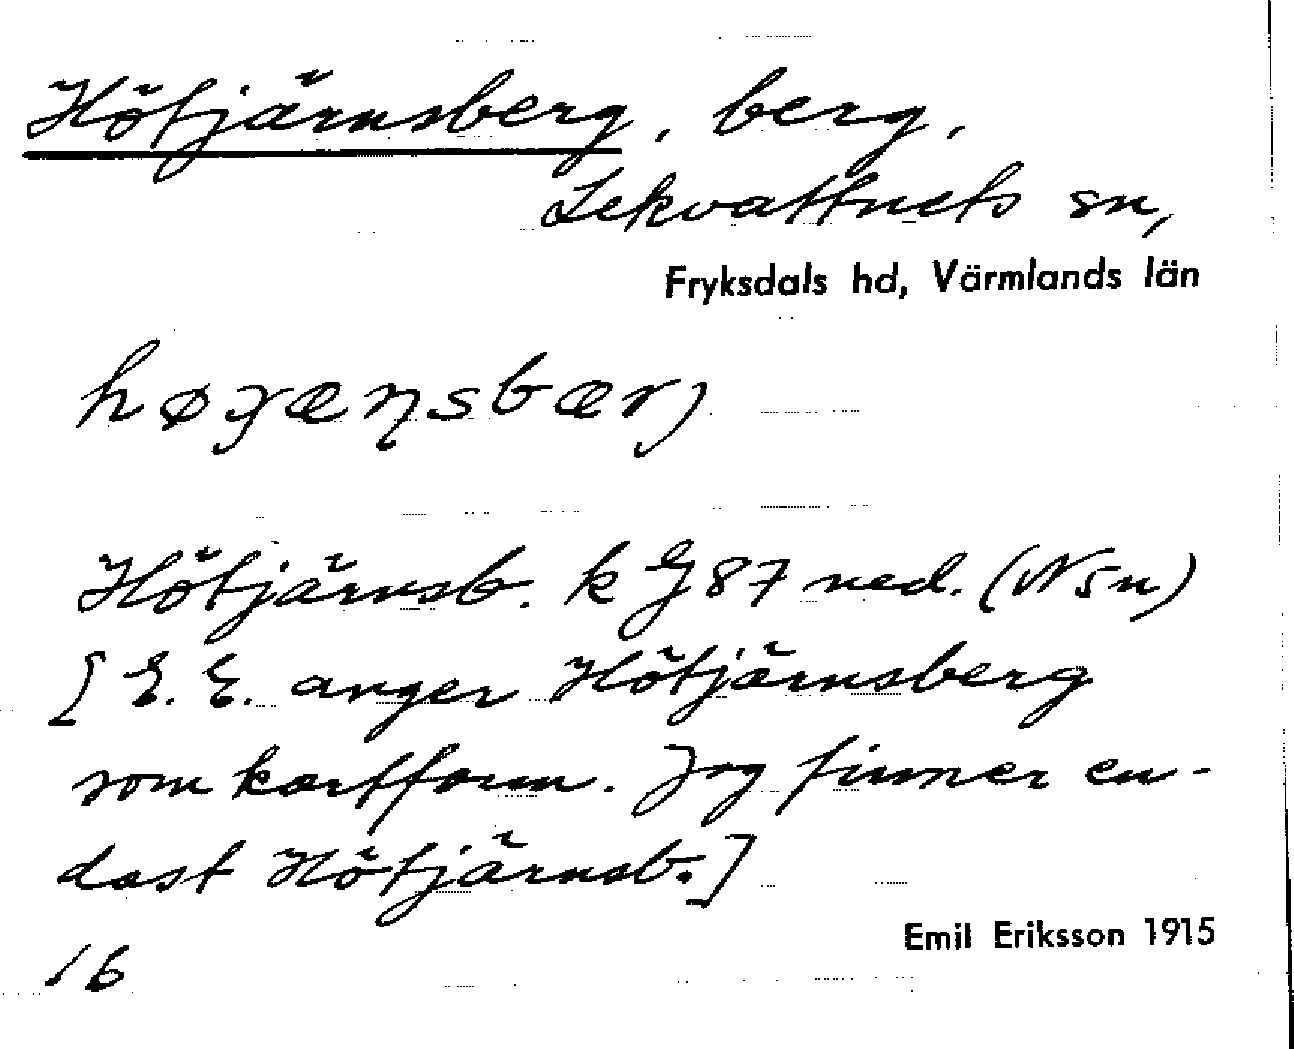 Hötjärnsberg, berg,
Lekvattnets sn,
Fryksdals hd, Värmlands län
høɟæɳsbærj
Hötjärnsb. k G 87 ned. (NSn)
[E. E. anger Hötjärnsberg
som kartform. Jag finner en-
dast Hötjärnsb.]
Emil Eriksson 1915
16